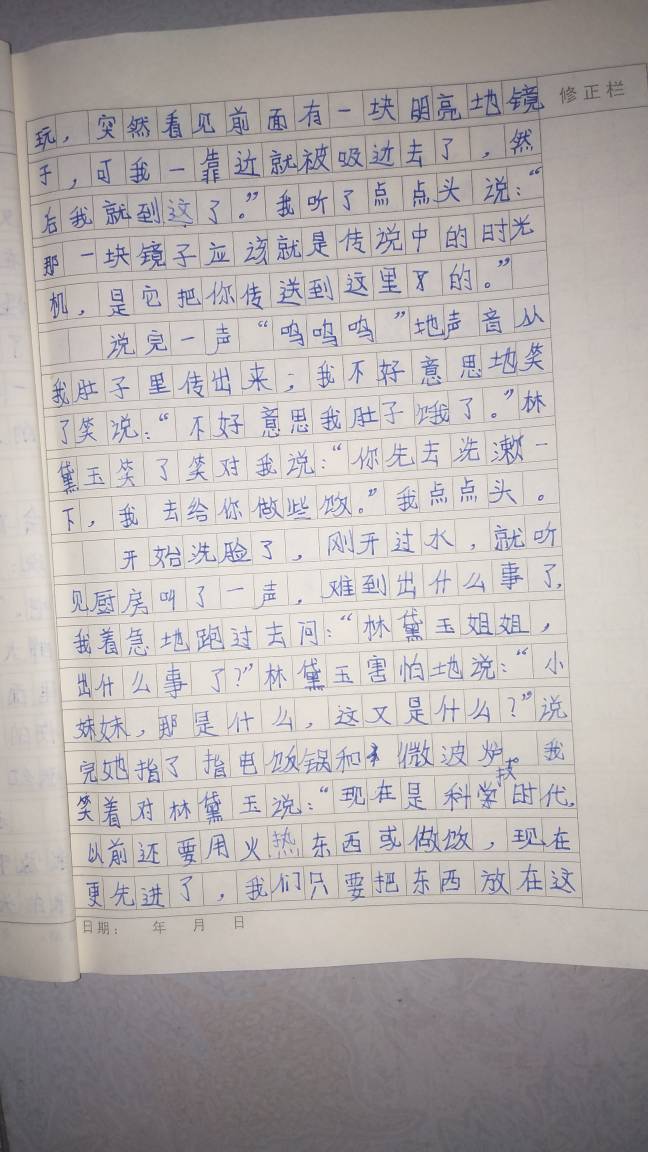 玩，突然看见前面有一块明亮地镜
修正栏
子，可我一靠近就被吸进去了，然
后我就到这了。”我听了点点头说：“
那一块镜子应该就是传说中的时光
机，是它把你传送到这里的。”
说完一声“呜呜呜”地声音从
我肚子里传出来；我不好意思地笑
了笑说：“不好意思我肚子饿了。”林
黛玉笑了笑对我说：“你先去洗漱一
下，我去给你做些饭。”我点点头。
开始洗脸了，刚开过水，就听
见厨房叫了一声，难到出什么事了，
我着急地跑过去问：“林黛玉姐姐，
出什么事了？”林黛玉害怕地说：“小
妹妹，那是什么，这又是什么？”说
完她指了指电饭锅和微波炉。我
笑着对林黛玉说：“现在是科学技时代，
以前还要用火热东西或做饭，现在
更先进了，我们只要把东西放在这
日期： 年 月 日